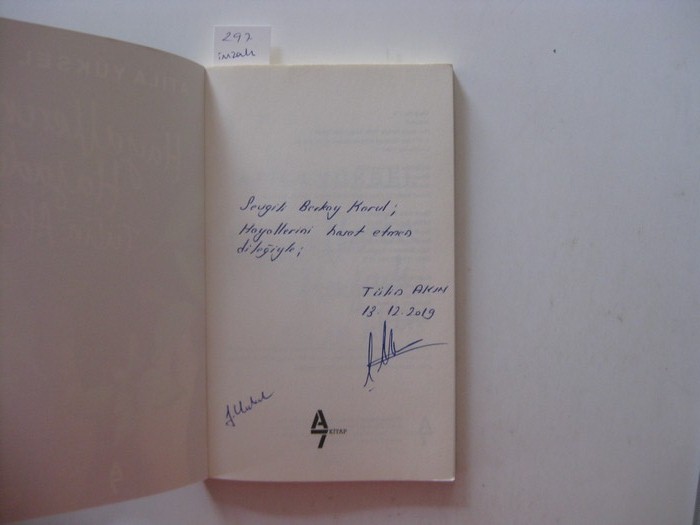 297
imzalı
Sevgili Berkay Korul;
Hayallerini hasat etmen
dileğiyle;
Tülin AKIN
13.12.2019
A7
KİTAP